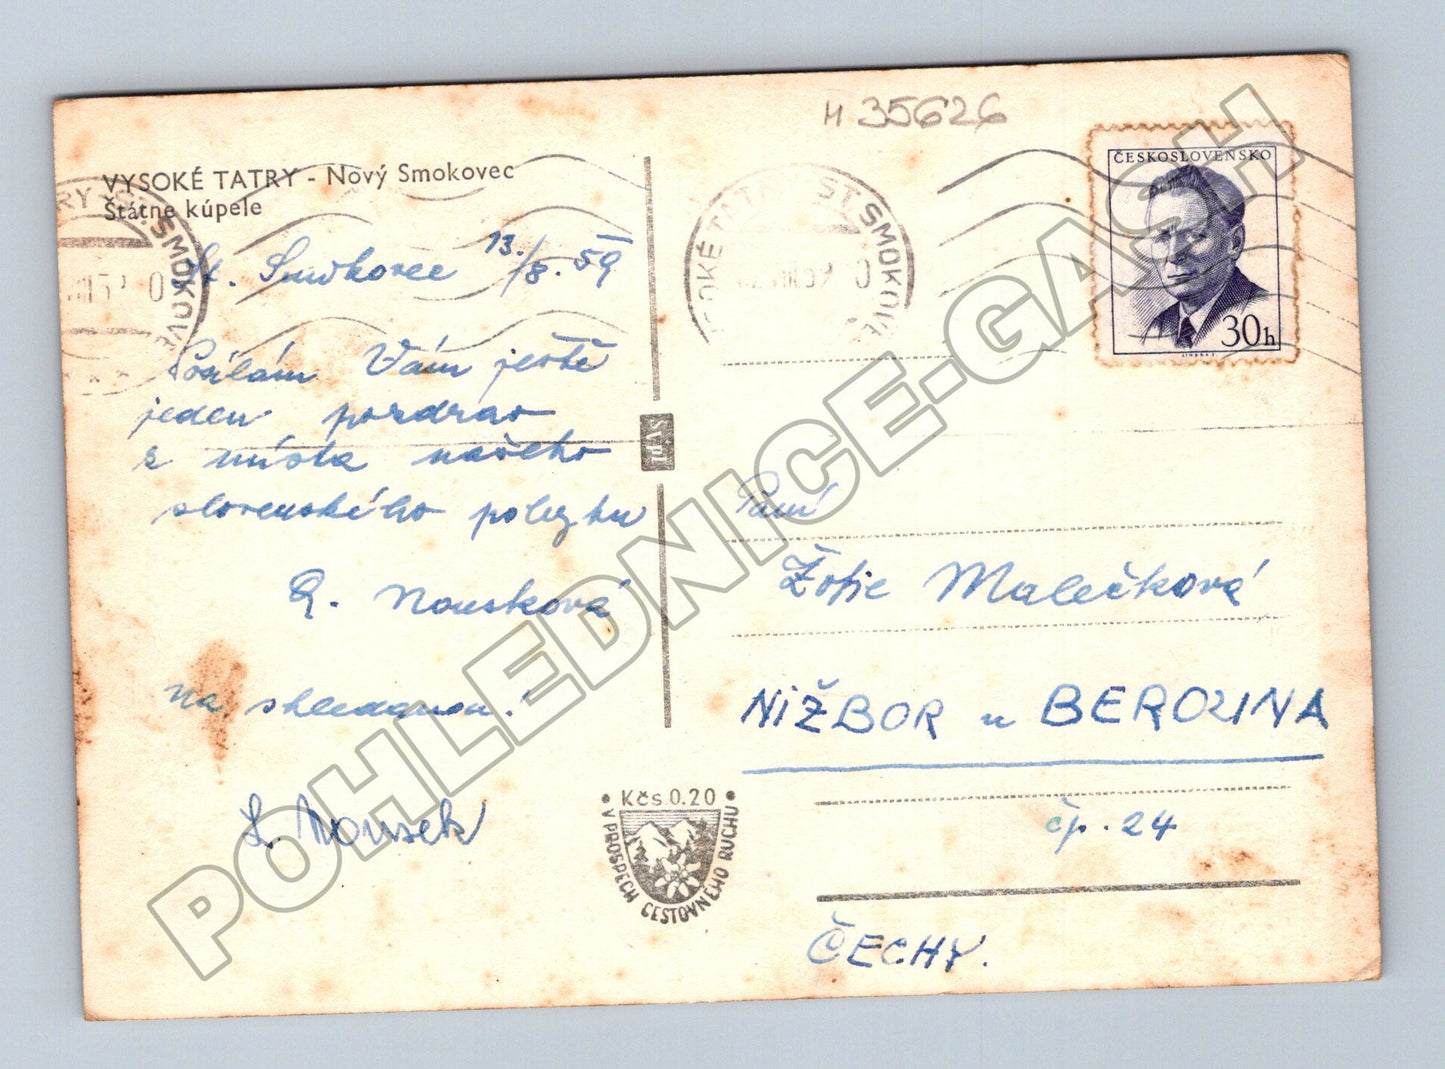 H 35626
VYSOKÉ TATRY - Nový Smokovec
Štátne kúpele
ČESKOSLOVENSKO
30h
ST. SMOKOVEC
St. Smokovec 13./8. 59
Posílám Vám ještě
jeden pozdrav
z místa našeho
slovenského pobytu
R. Nousková
na shledanou!
L. Nousek
SVPL
Paní
Žofie Malečková
NIŽBOR u BEROUNA
čp. 24
ČECHY.
Kčs 0.20
V PROSPECH CESTOVNÉHO RUCHU
POHLEDNICE-GASH